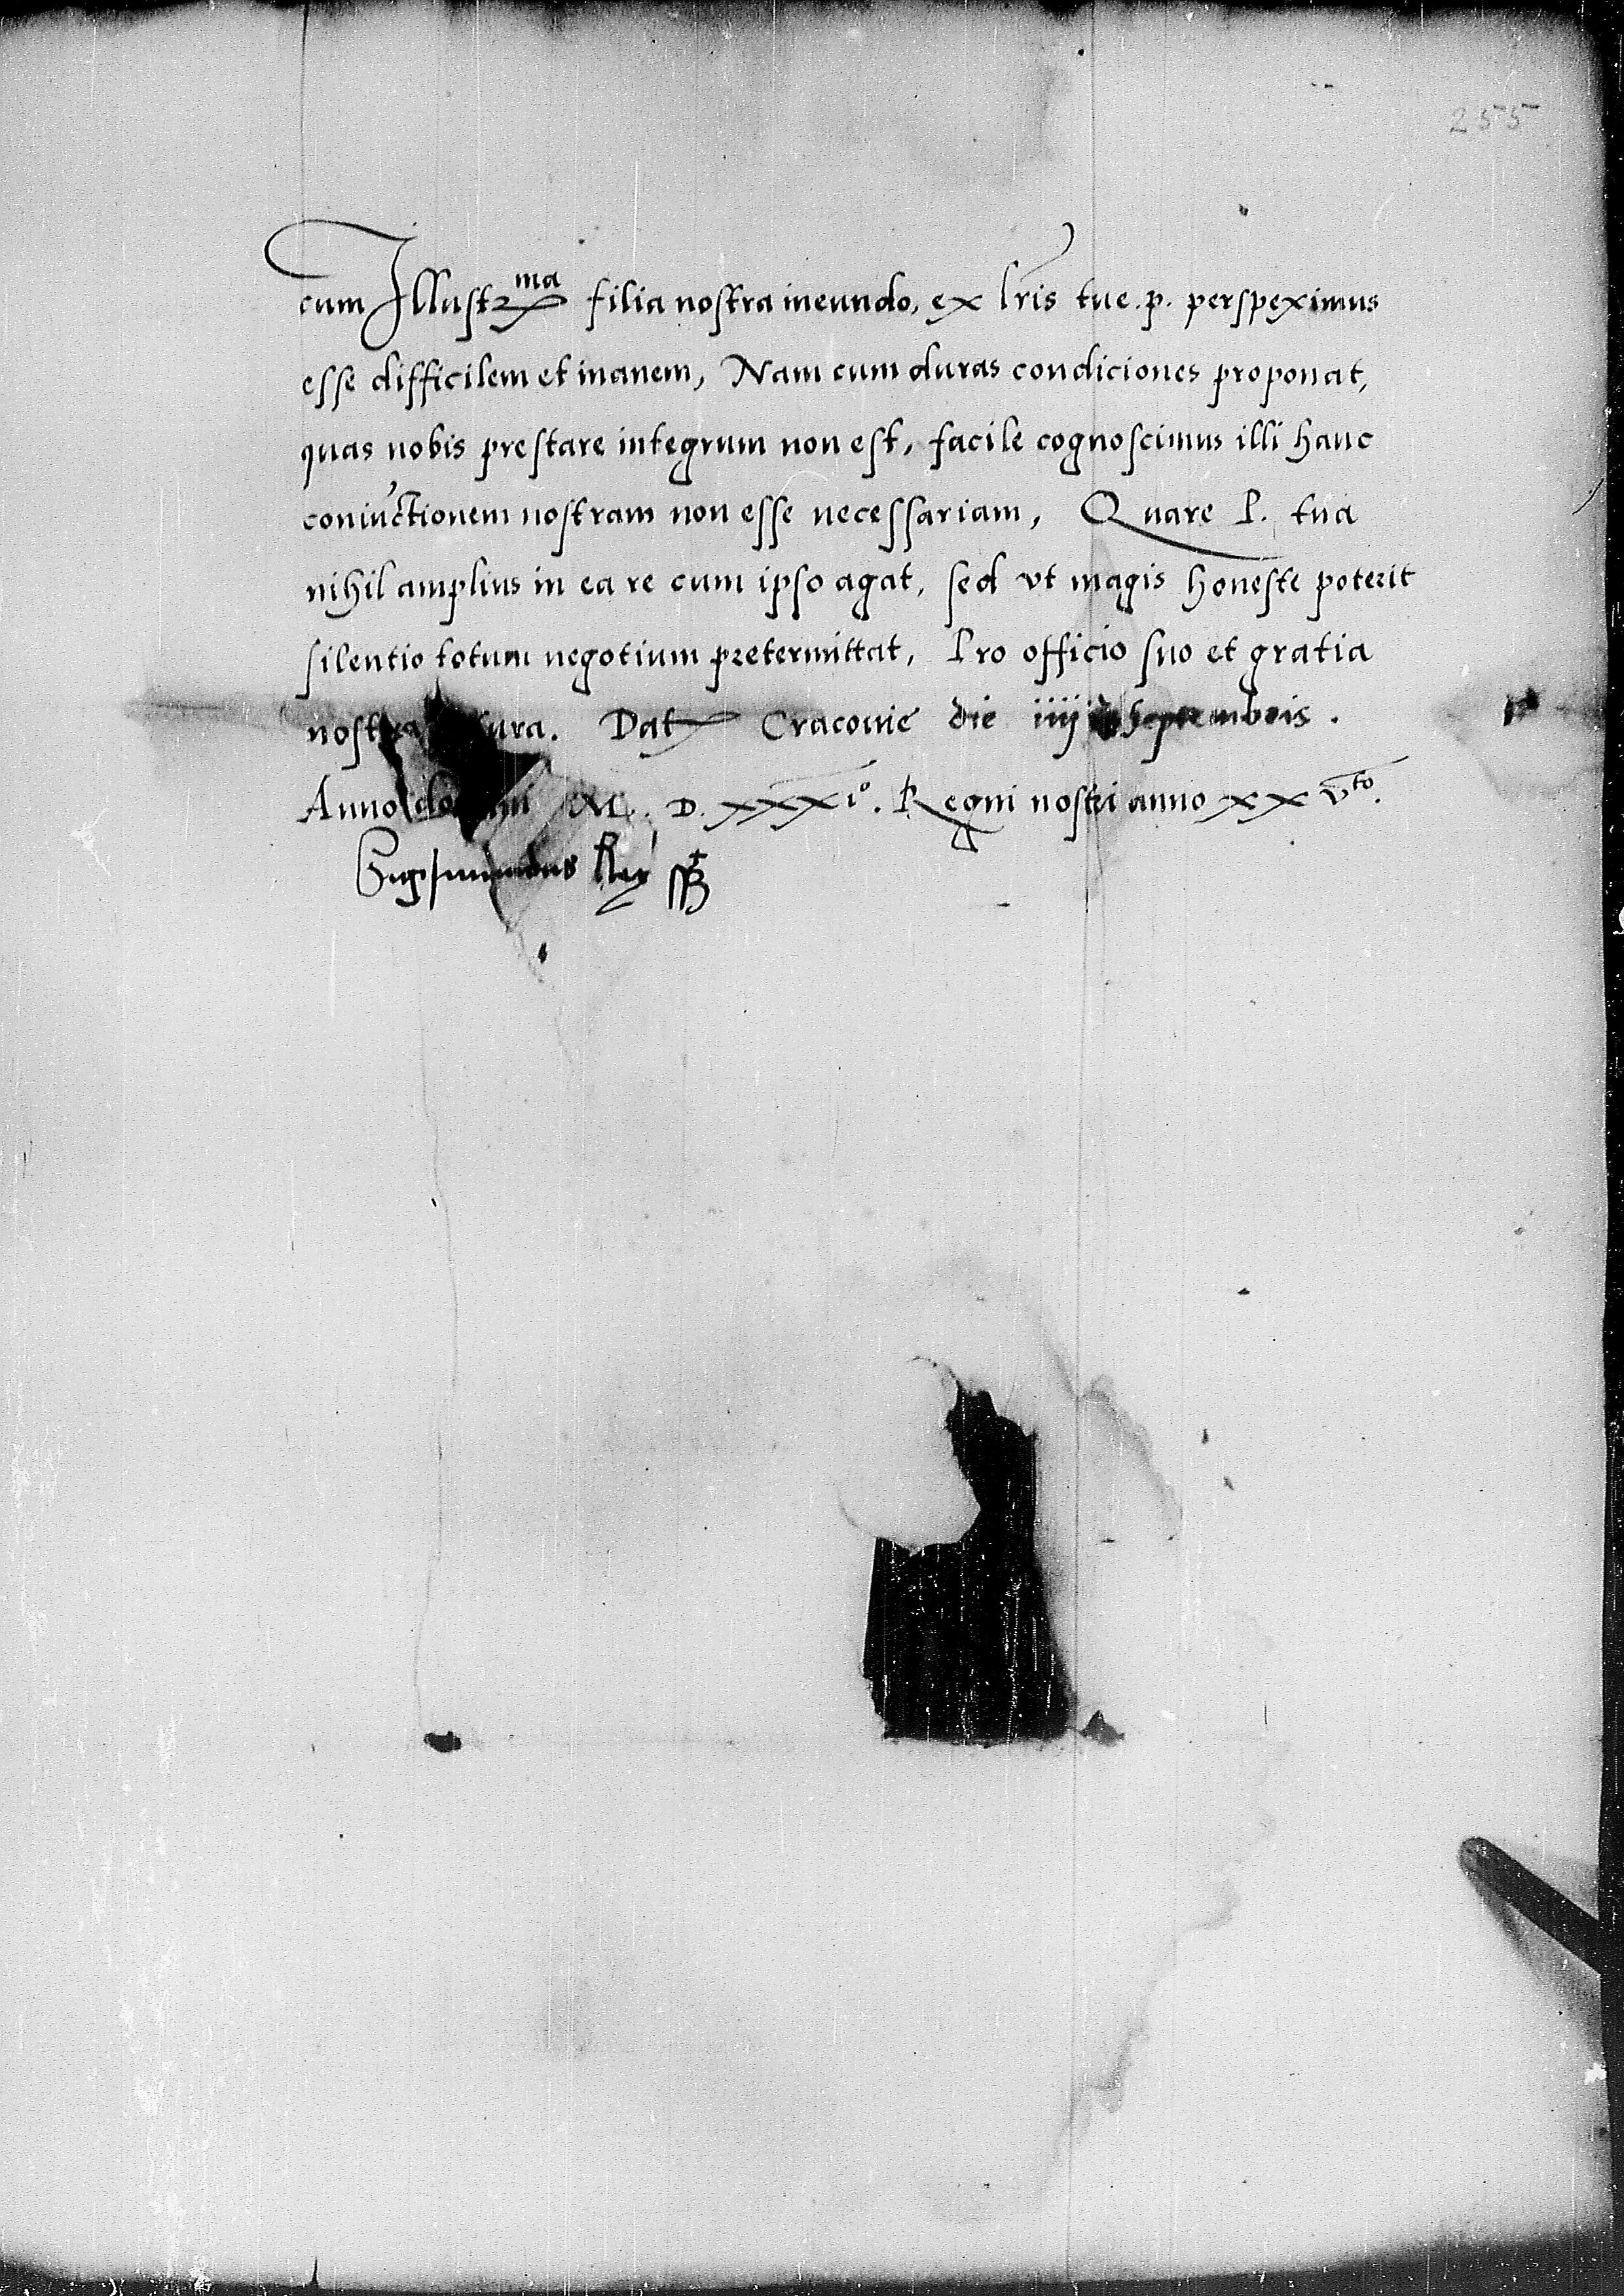 255
cum Illustr ma filia nostra ineundo, ex lris tue .p. perspeximus
esse difficilem et inanem, Nam cum duras condiciones proponat,
quas nobis prestare integrum non est, facile cognoscimus illi hanc
coniuctionem nostram non esse necessariam, Quare P. tua
nihil amplius in ea re cum ipso agat, sed vt magis honeste poterit
silentio totum negotium pretermittat, Pro officio suo et gratia
nostra ura. Dat Cracouie die iiij Septembris.
Anno M. D. xxxi o. Regni nostri anno xx v to.
Sigismundus Rex